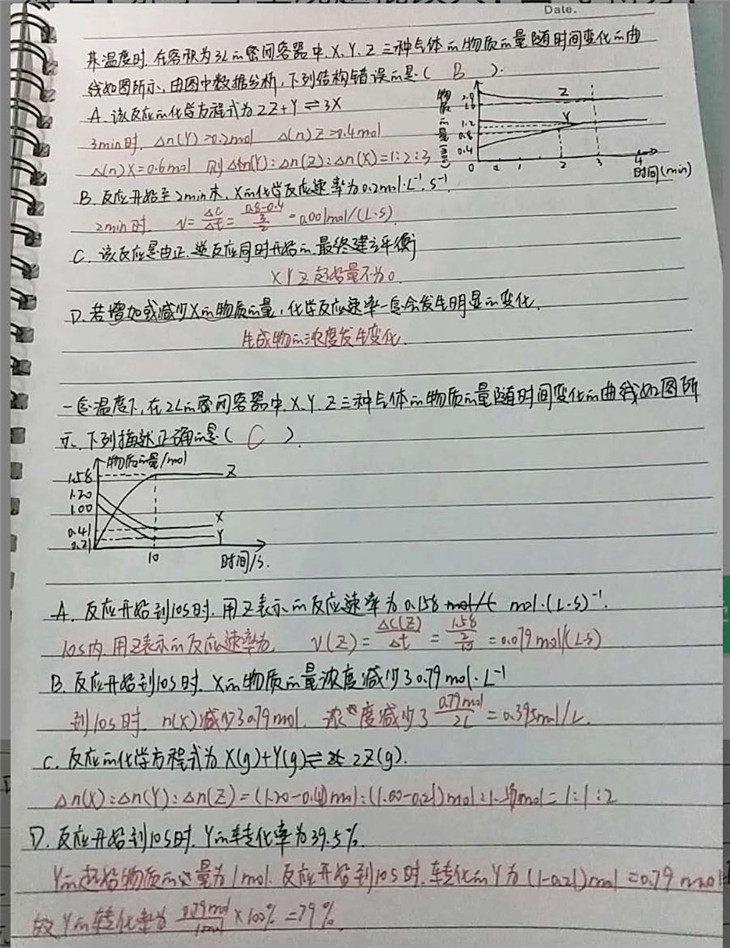 Date.
某温度时,在容积为3L的密闭容器中,X、Y、Z三种气体的物质的量随时间变化的曲
线如图所示,由图中数据分析,下列结构与错误的是( B ).
A. 该反应的化学方程式为 2Z+Y⇌3X
3min时, Δn(Y)=0.2mol Δ(n)Z=0.4mol
Δ(n)X=0.6mol 则Δn(Y):Δn(Z):Δn(X)=1:2:3
Z
Y
1.2
0.8
0.4
0 1 2 3 4
时间(min)
B. 反应开始至2min末,X的化学反应速率为0.2mol·L⁻¹·s⁻¹.
2min时, v=Δc/Δt= = 0.001mol/(L·s).
C. 该反应是由正、逆反应同时开始的,最终建立平衡
X Y Z 起始量不为0.
D. 若增加或减少X的物质的量,化学反应速率一定会发生明显的变化.
生成物的浓度发生变化.
一定温度下,在2L的密闭容器中,X、Y、Z三种气体的物质的量随时间变化的曲线如图所
示,下列描述正确的是( C ).
物质的量/mol
1.58 Z
1.20
1.00
X
0.41 Y
0.21
10 时间/s.
A. 反应开始到10s时,用Z表示的反应速率为0.158 mol·(L·s)⁻¹.
10s内,用Z表示的反应速率为 v(Z)=Δc(Z)/Δt = (1.58/2)/10 = 0.079mol/(L·s)
B. 反应开始到10s时,X的物质的量浓度减少了0.79mol·L⁻¹
到10s时,n(X)减少了0.79mol,浓度减少了 0.79mol/2L = 0.395mol/L.
C. 反应的化学方程式为 X(g)+Y(g)⇌2Z(g).
Δn(X):Δn(Y):Δn(Z)=(1.20-0.41)mol:(1.00-0.21)mol:1.58mol=1:1:2
D. 反应开始到10s时,Y的转化率为39.5%.
Y的起始物质的量为1mol.反应开始到10s时,转化的Y为(1-0.21)mol=0.79mol
故Y的转化率为 0.79mol/1mol ×100%=79%.